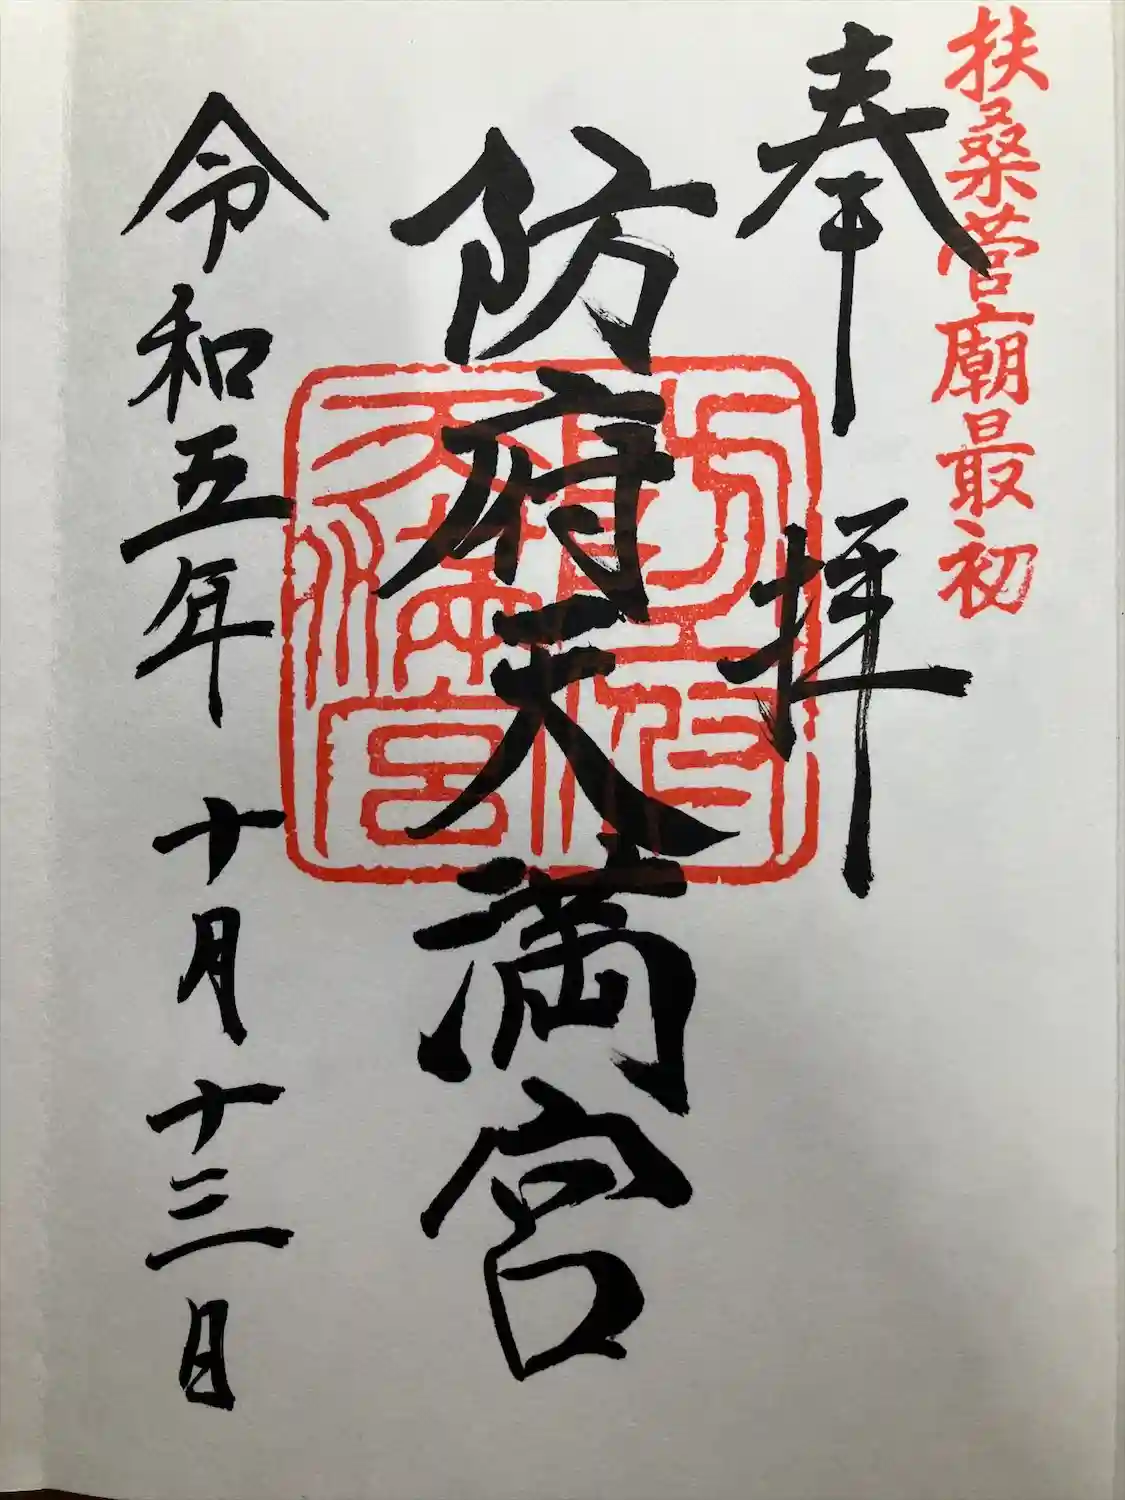 扶桑菅廟最初
奉拝
防府天満宮
防府天満宮
令和五年十月十三日